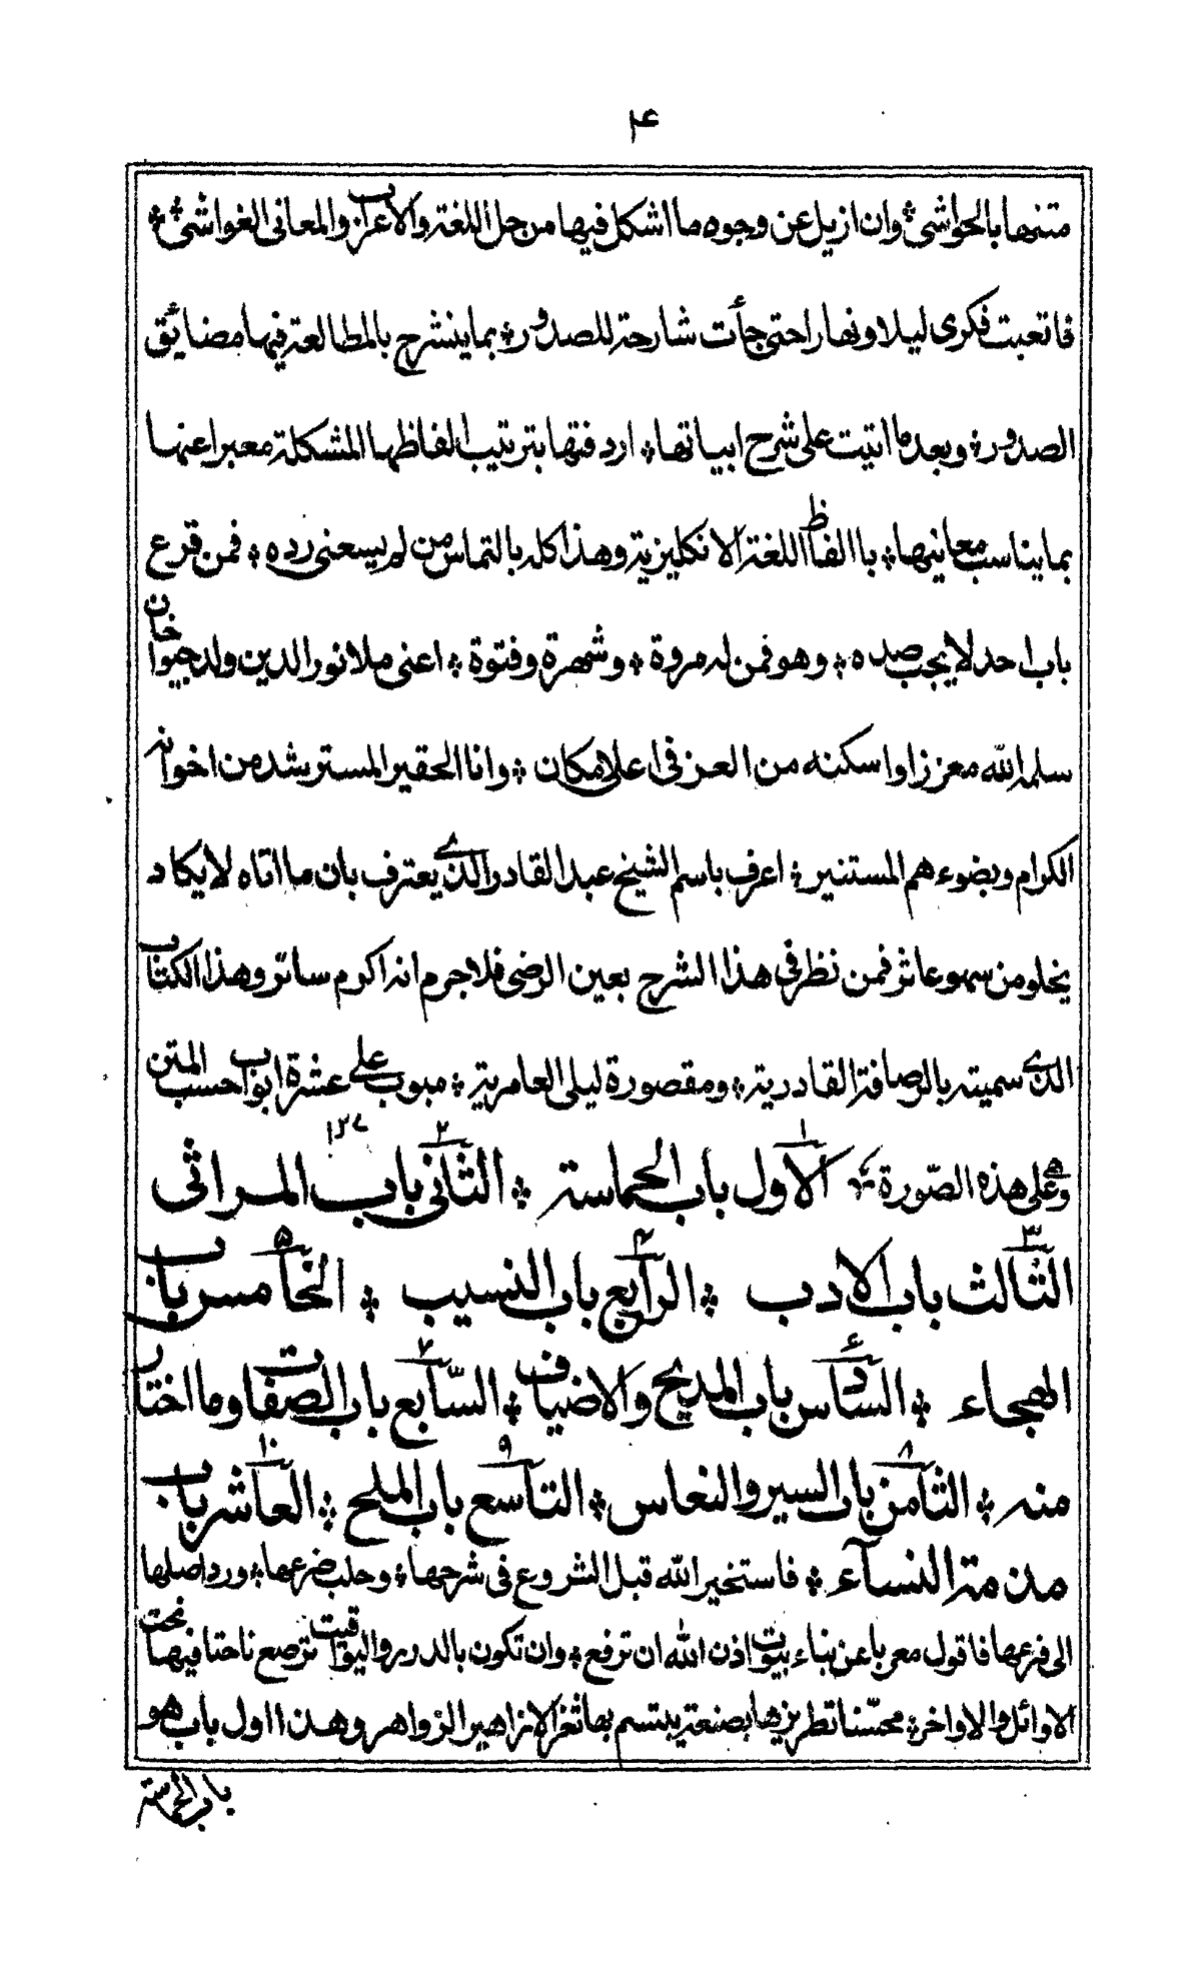 ۴
متنها بالحواشى ۞ وان ازيل عن وجوه ما اشكل فيها من حل اللغة والاعراب والمعانى الغواشى ۞
فاتعبت فكرى ليلا ونهارا حتى جأت شارحة للصدور ۞ بما ينشرح بالمطالعة فيها مضائق
الصدور ۞ وبعد ما اتيت على شرح ابياتها ۞ اردفتها بترتيب الفاظها المشكلة معبرا عنها
بما يناسب معانيها ۞ باالفاظ اللغة الانكليزية وهذا كله بالتماس من لم يسعنى رده ۞ فمن قرع
باب احد لا يجب صده ۞ وهو فمن له مروة ۞ وشهرة وفتوة ۞ اعنى ملا نورالدين ولد جيواخان
سلمه الله معززا واسكنه من العز فى اعلا مكان ۞ وانا الحقير المسترشد من اخوانه
الكرام وبضوءهم المستنير ۞ اعرف باسم الشيخ عبد القادر الذى يعترف بان ما اتاه لا يكاد
يخلو من سهو عاثر فمن نظر فى هذا الشرح بعين الرضى فلا جرم انه اكرم ساتر وهذا الكتاب
الذى سميته بالرصافة القادرية ۞ ومقصورة ليلى العامرية ۞ مبوب على عشرة ابواب حسب المتن
وعلى هذه الصورة ۞ الاول ١ باب الحماسة ۞ الثانى ٢ باب المراثى ١٣٧
الثالث ٣ باب الادب ۞ الرابع ۴ باب النسيب ۞ الخامس ۵ باب
الهجاء ۞ السادس ۶ باب المديح والاضياف ۞ السابع ٧ باب الصفات وما اختار
منه ۞ الثامن ٨ باب السير والنعاس ۞ التاسع ٩ باب الملح ۞ العاشر ١٠ باب
مذمة النسآء ۞ فاستخير الله قبل الشروع فى شرحها ۞ وحلب ضرعها ۞ ورد اصلها
الى فرعها فاقول معربا عن بناء بيوت اذن الله ان ترفع ۞ وان تكون بالدرر واليواقيت ترصع ناحتا فيها نحت
الاوائل والاواخر ۞ محسّنا تطريزها بصنعة يبتسم بها ثغر الازاهير الزواهر وهذا اول باب هو
باب الحماسة